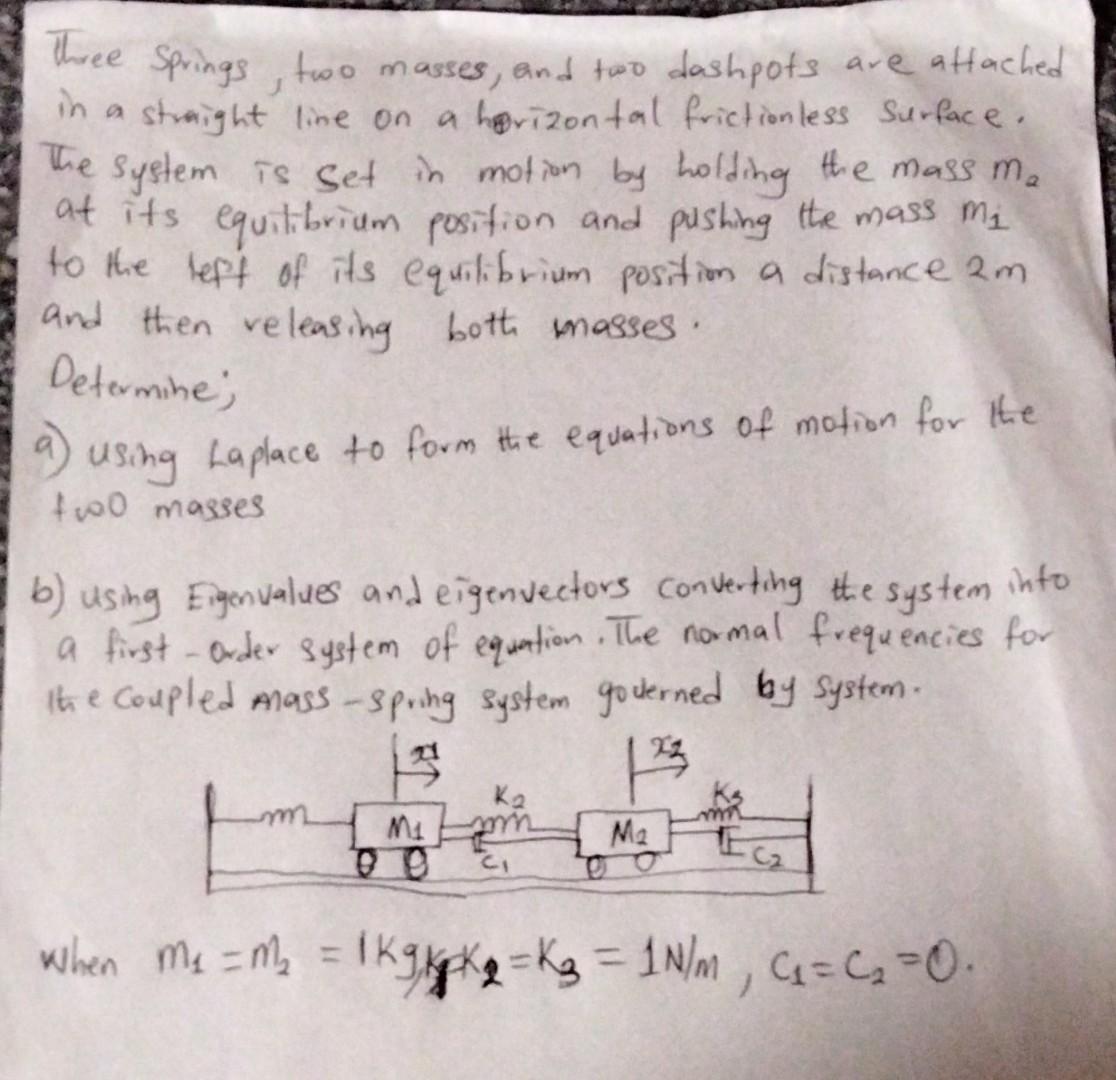 Three Springs, two masses, and two dashpots are attached
in a straight line on a horizontal frictionless Surface.
The system is Set in motion by holding the mass m2
at its equilibrium position and pushing the mass m1
to the left of its equilibrium position a distance 2m
and then releasing both masses.
Determine;
a) using Laplace to form the equations of motion for the
two masses
b) using Eigenvalues and eigenvectors converting the system into
a first-order system of equation. The normal frequencies for
the coupled mass-spring system governed by system.
x1 x2
K2 K3
M1 M2
C1 C2
When m1 = m2 = 1Kg, K2 = K3 = 1N/m, C1 = C2 = 0.